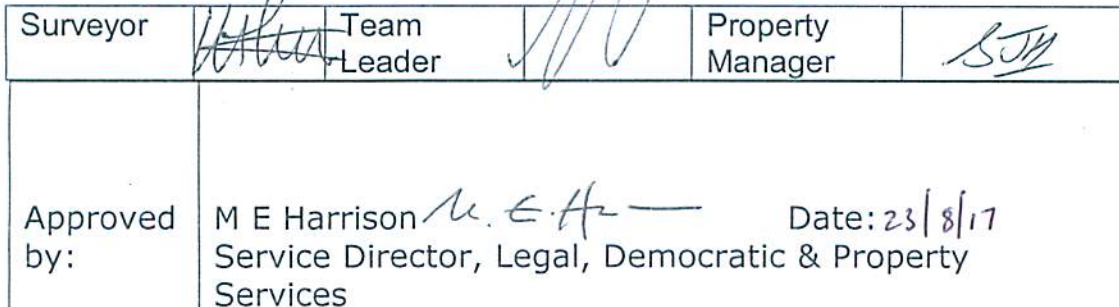 Surveyor Team Leader Property Manager SJH
Approved by: M E Harrison M. E. H Date: 23/8/17
Service Director, Legal, Democratic & Property
Services